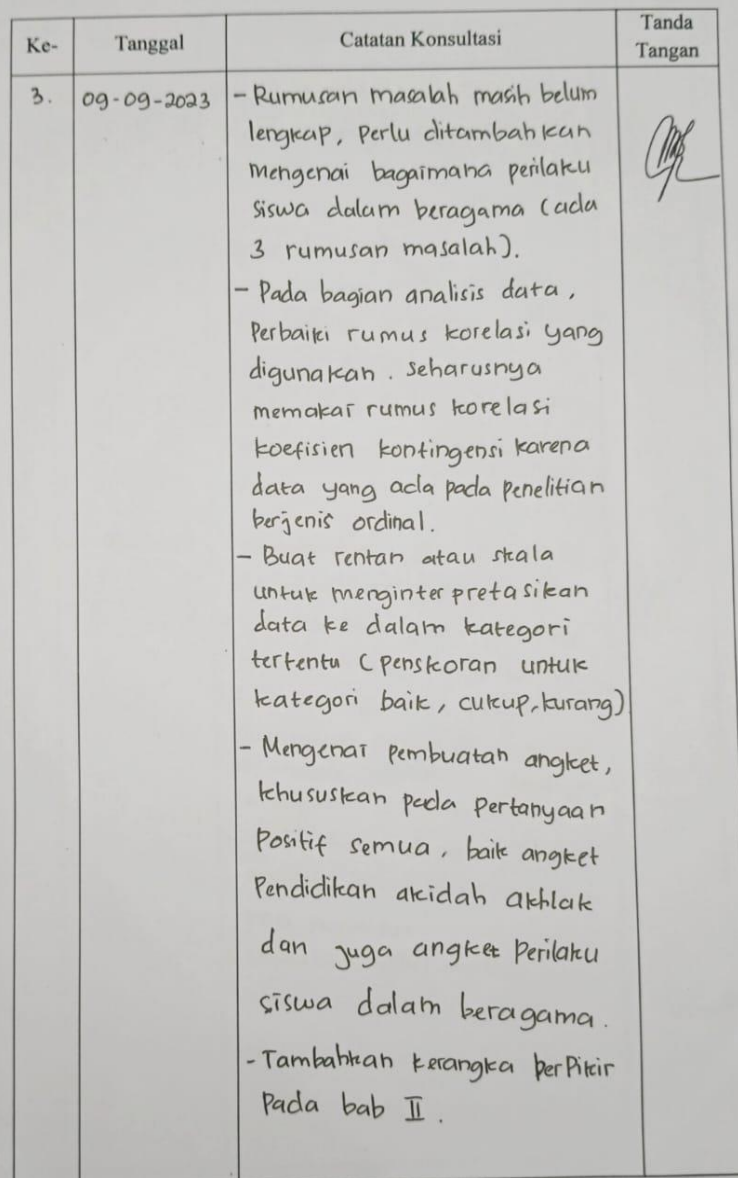 Ke-
Tanggal
Catatan Konsultasi
Tanda
Tangan
3.
09-09-2023
- Rumusan masalah masih belum
lengkap, perlu ditambahkan
mengenai bagaimana perilaku
siswa dalam beragama (ada
3 rumusan masalah).
- Pada bagian analisis data,
Perbaiki rumus korelasi yang
digunakan. seharusnya
memakai rumus korelasi
koefisien kontingensi karena
data yang ada pada penelitian
berjenis ordinal.
- Buat rentan atau skala
untuk menginterpretasikan
data ke dalam kategori
tertentu (penskoran untuk
kategori baik, cukup, kurang)
- Mengenai pembuatan angket,
khususkan pada pertanyaan
Positif semua, baik angket
Pendidikan akidah akhlak
dan juga angket Perilaku
siswa dalam beragama.
- Tambahkan kerangka berPikir
Pada bab II.